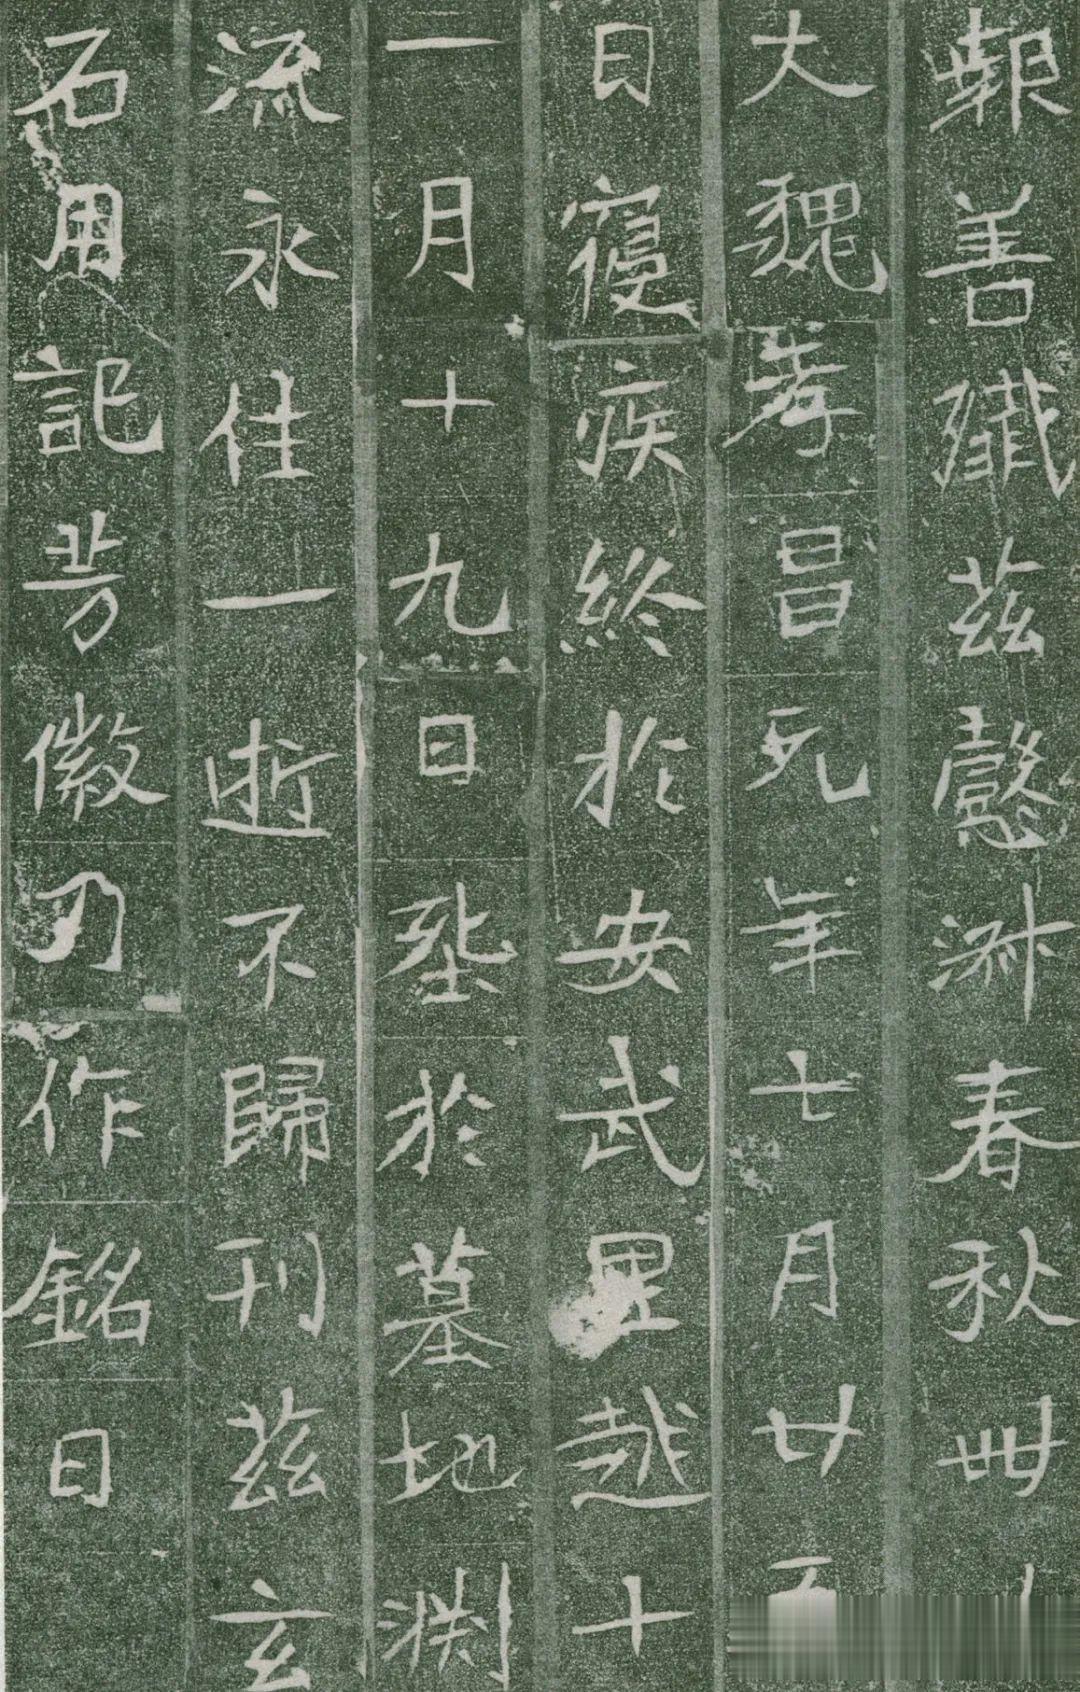 報善殲茲懿淋春秋卌
大魏孝昌元年七月廿五
日寑疾終於安武里越十
一月十九日塟於墓地渊
流永住一逝不歸刊茲玄
石用記芳徽乃作銘曰